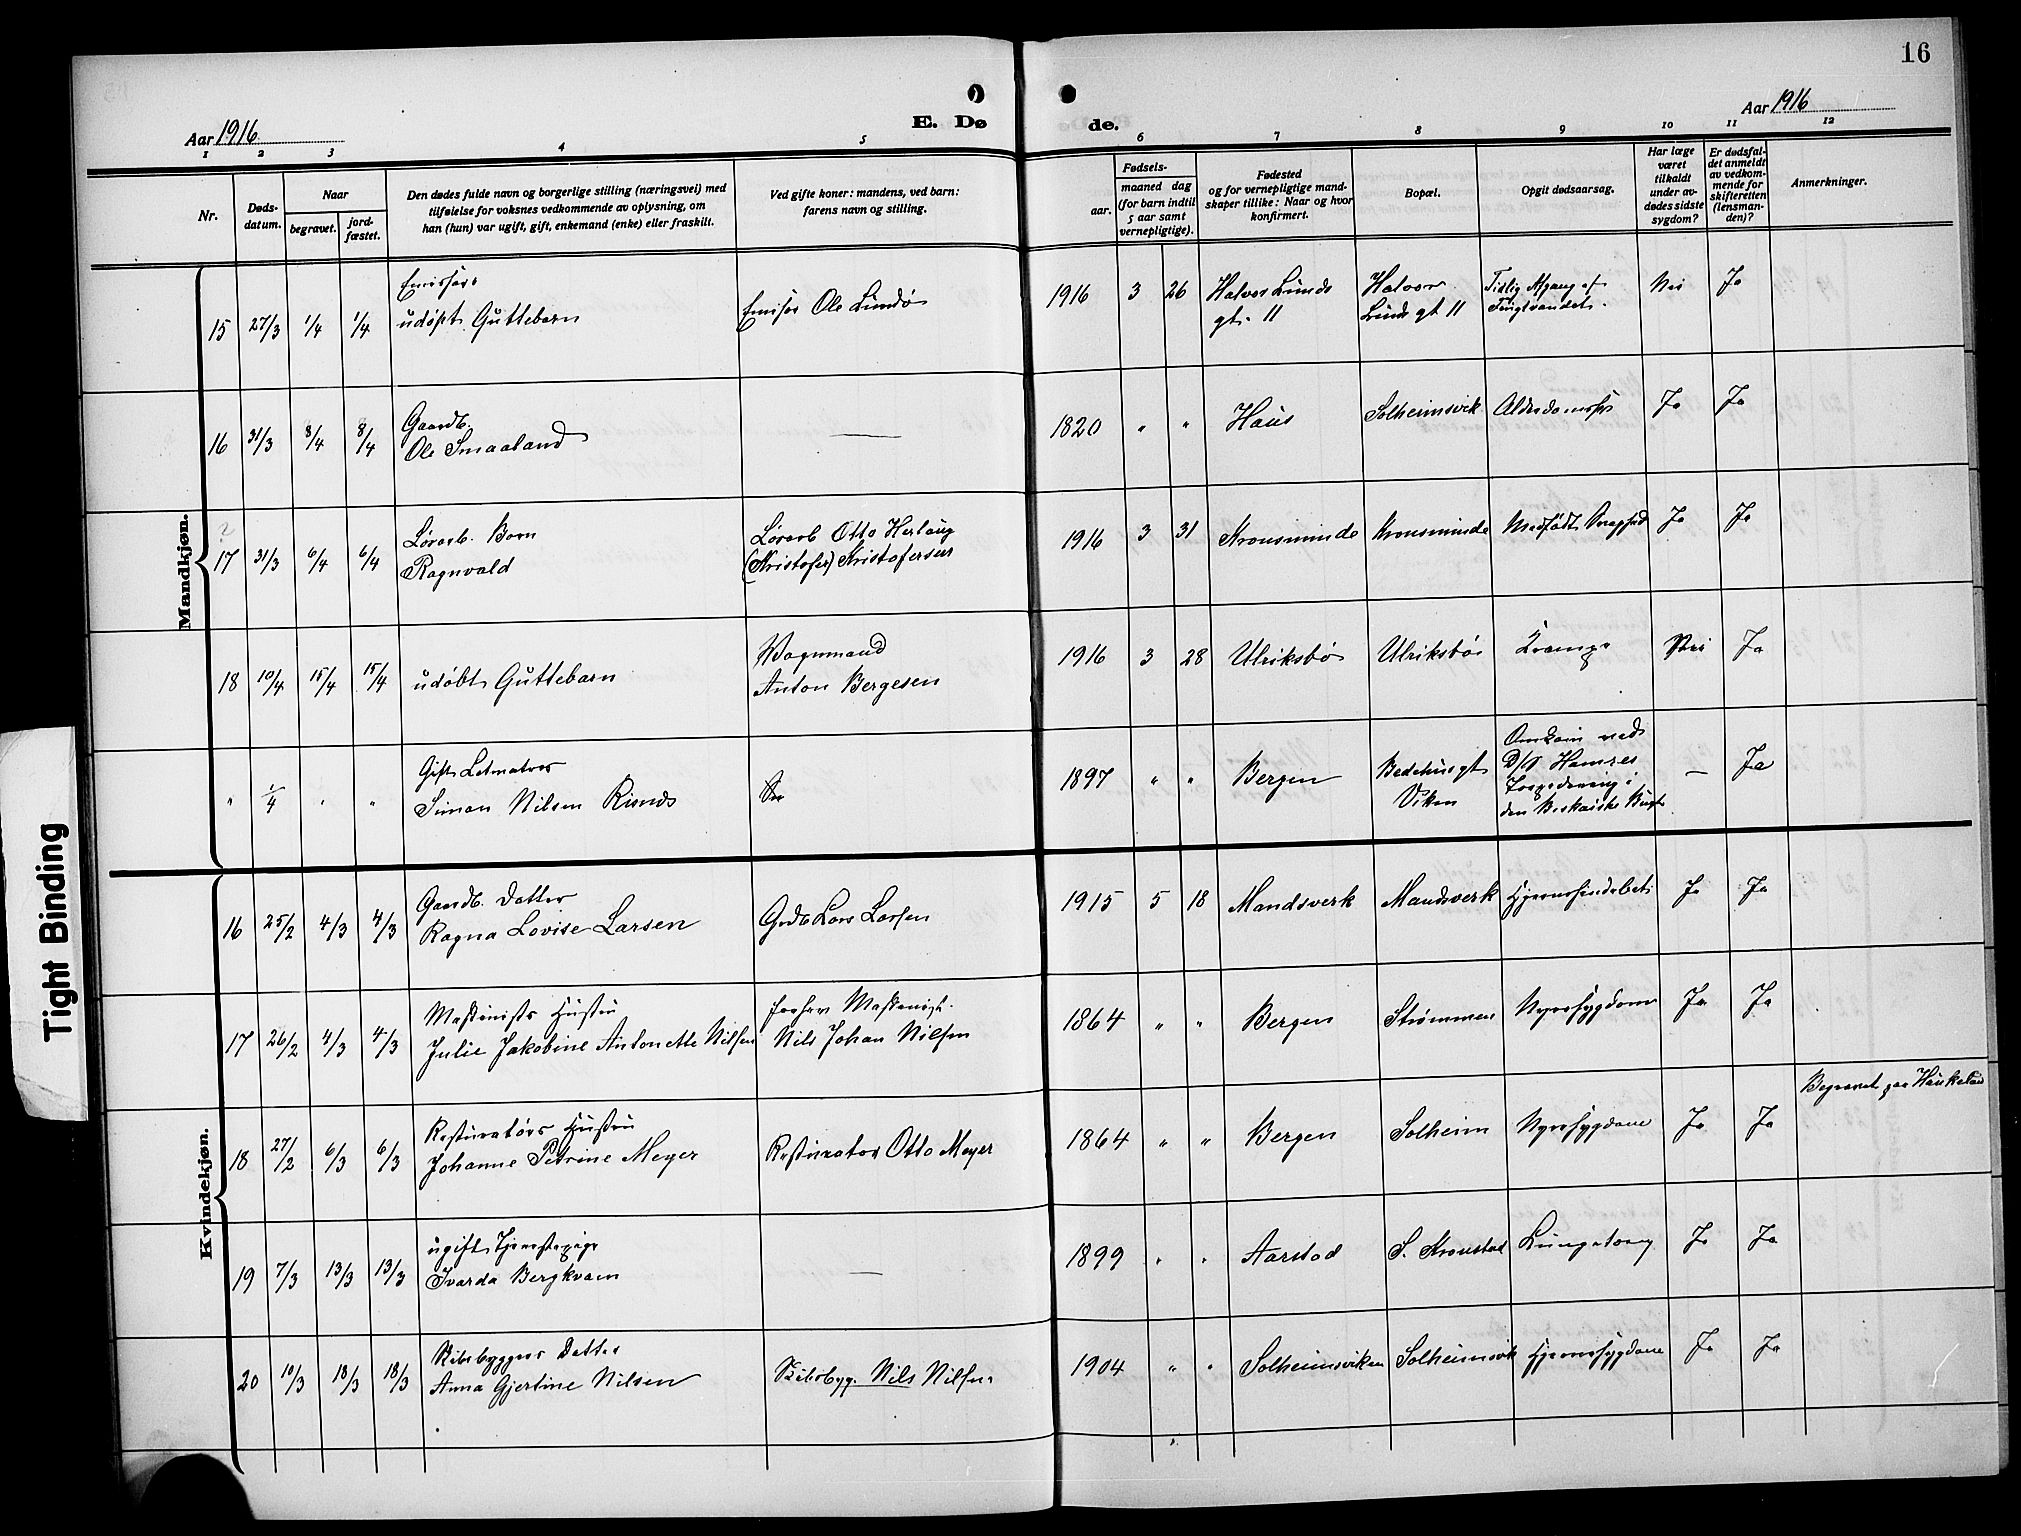 16
Aar 1916
E. Dø
de.
Aar 1916
1 2 3 4 5 6 7 8 9 10 11 12
Nr.
Døds-
datum.
Naar
begravet.
jord-
fæstet.
Den dødes fulde navn og borgerlige stilling (næringsvei) med
tilføielse for voksnes vedkommende av oplysning, om
han (hun) var ugift, gift, enkemand (enke) eller fraskilt.
Ved gifte koner: mandens, ved barn:
farens navn og stilling.
Fødsels-
aar.
maaned dag
(for barn indtil
5 aar samt
vernepligtige).
Fødested
og for vernepligtige mand-
skaper tillike: Naar og hvor
konfirmert.
Bopæl.
Opgit dødsaarsag.
Har læge
været
tilkaldt
under av-
dødes sidste
sygdom?
Er dødsfal-
det anmeldt
av vedkom-
mende for
skifteretten
(lensman-
den)?
Anmerkninger.
Mandkjøn.
15 27/3 1/4 1/4
Emissærs
udøpt Guttebarn
Emisær Ole Lindø
1916 3 26
Halvor Linds
gt. 11
Halvor
Linds gt 11
Tidlig Afgang af
Nei Ja
16 31/3 8/4 8/4
Gaardb.
Ole Smaaland
—
1820 " " Haus Solheimsvik Alderdomssv Ja Ja
?
17 31/3 6/4 6/4
Lørarb. Barn
Ragnvald
Lørarb Otto Herlaug
(Kristofer) Kristofersen
1916 3 31 Kronsminde Kronsminde Medfødt Ja Ja
18 10/4 15/4 15/4
udøbt Guttebarn
Vognmand
Anton Bergesen
1916 3 28 Ulriksbø Ulriksbø Krampe Nei Ja
" 1/4 " "
Gift Letmatros
Simon Nilsen Risnes
1897 " " Bergen
Bedehusgt
Viken
Omkom ved
D/S Hamres
Torpedering i
den Biskaiske Bugt
— Ja
Kvindekjøn.
16 25/2 4/3 4/3
Gaardb. Datter
Ragna Lovise Larsen
Grdb Lars Larsen
1915 5 18 Mandsverk Mandsverk Hjernehindebet. Ja Ja
17 26/2 4/3 4/3
Maskinists Hustru
Julie Jakobine Antonette Nilsen
forhen Maskinist.
Nils Johan Nilsen
1864 " " Bergen Strømmen Nyresygdom Ja Ja
18 27/2 6/3 6/3
Resturatørs Hustru
Johanne Petrine Meyer
Resturatør Otto Meyer
1864 " " Bergen Solheim Nyresygdom Ja Ja
Begravet paa Haukeland
19 7/3 13/3 13/3
ugift Tjenestepige
Ivarda Bergkvam
—
1899 " " Aarstad S. Kronstad Lungetæring Ja Ja
20 10/3 18/3 18/3
Skibsbyggers Datter
Anna Gjertine Nilsen
Skibsbyg. Nils Nilsen
1904 " " Solheimsviken Solheimsvik Hjernesygdom Ja Ja
Tight Binding